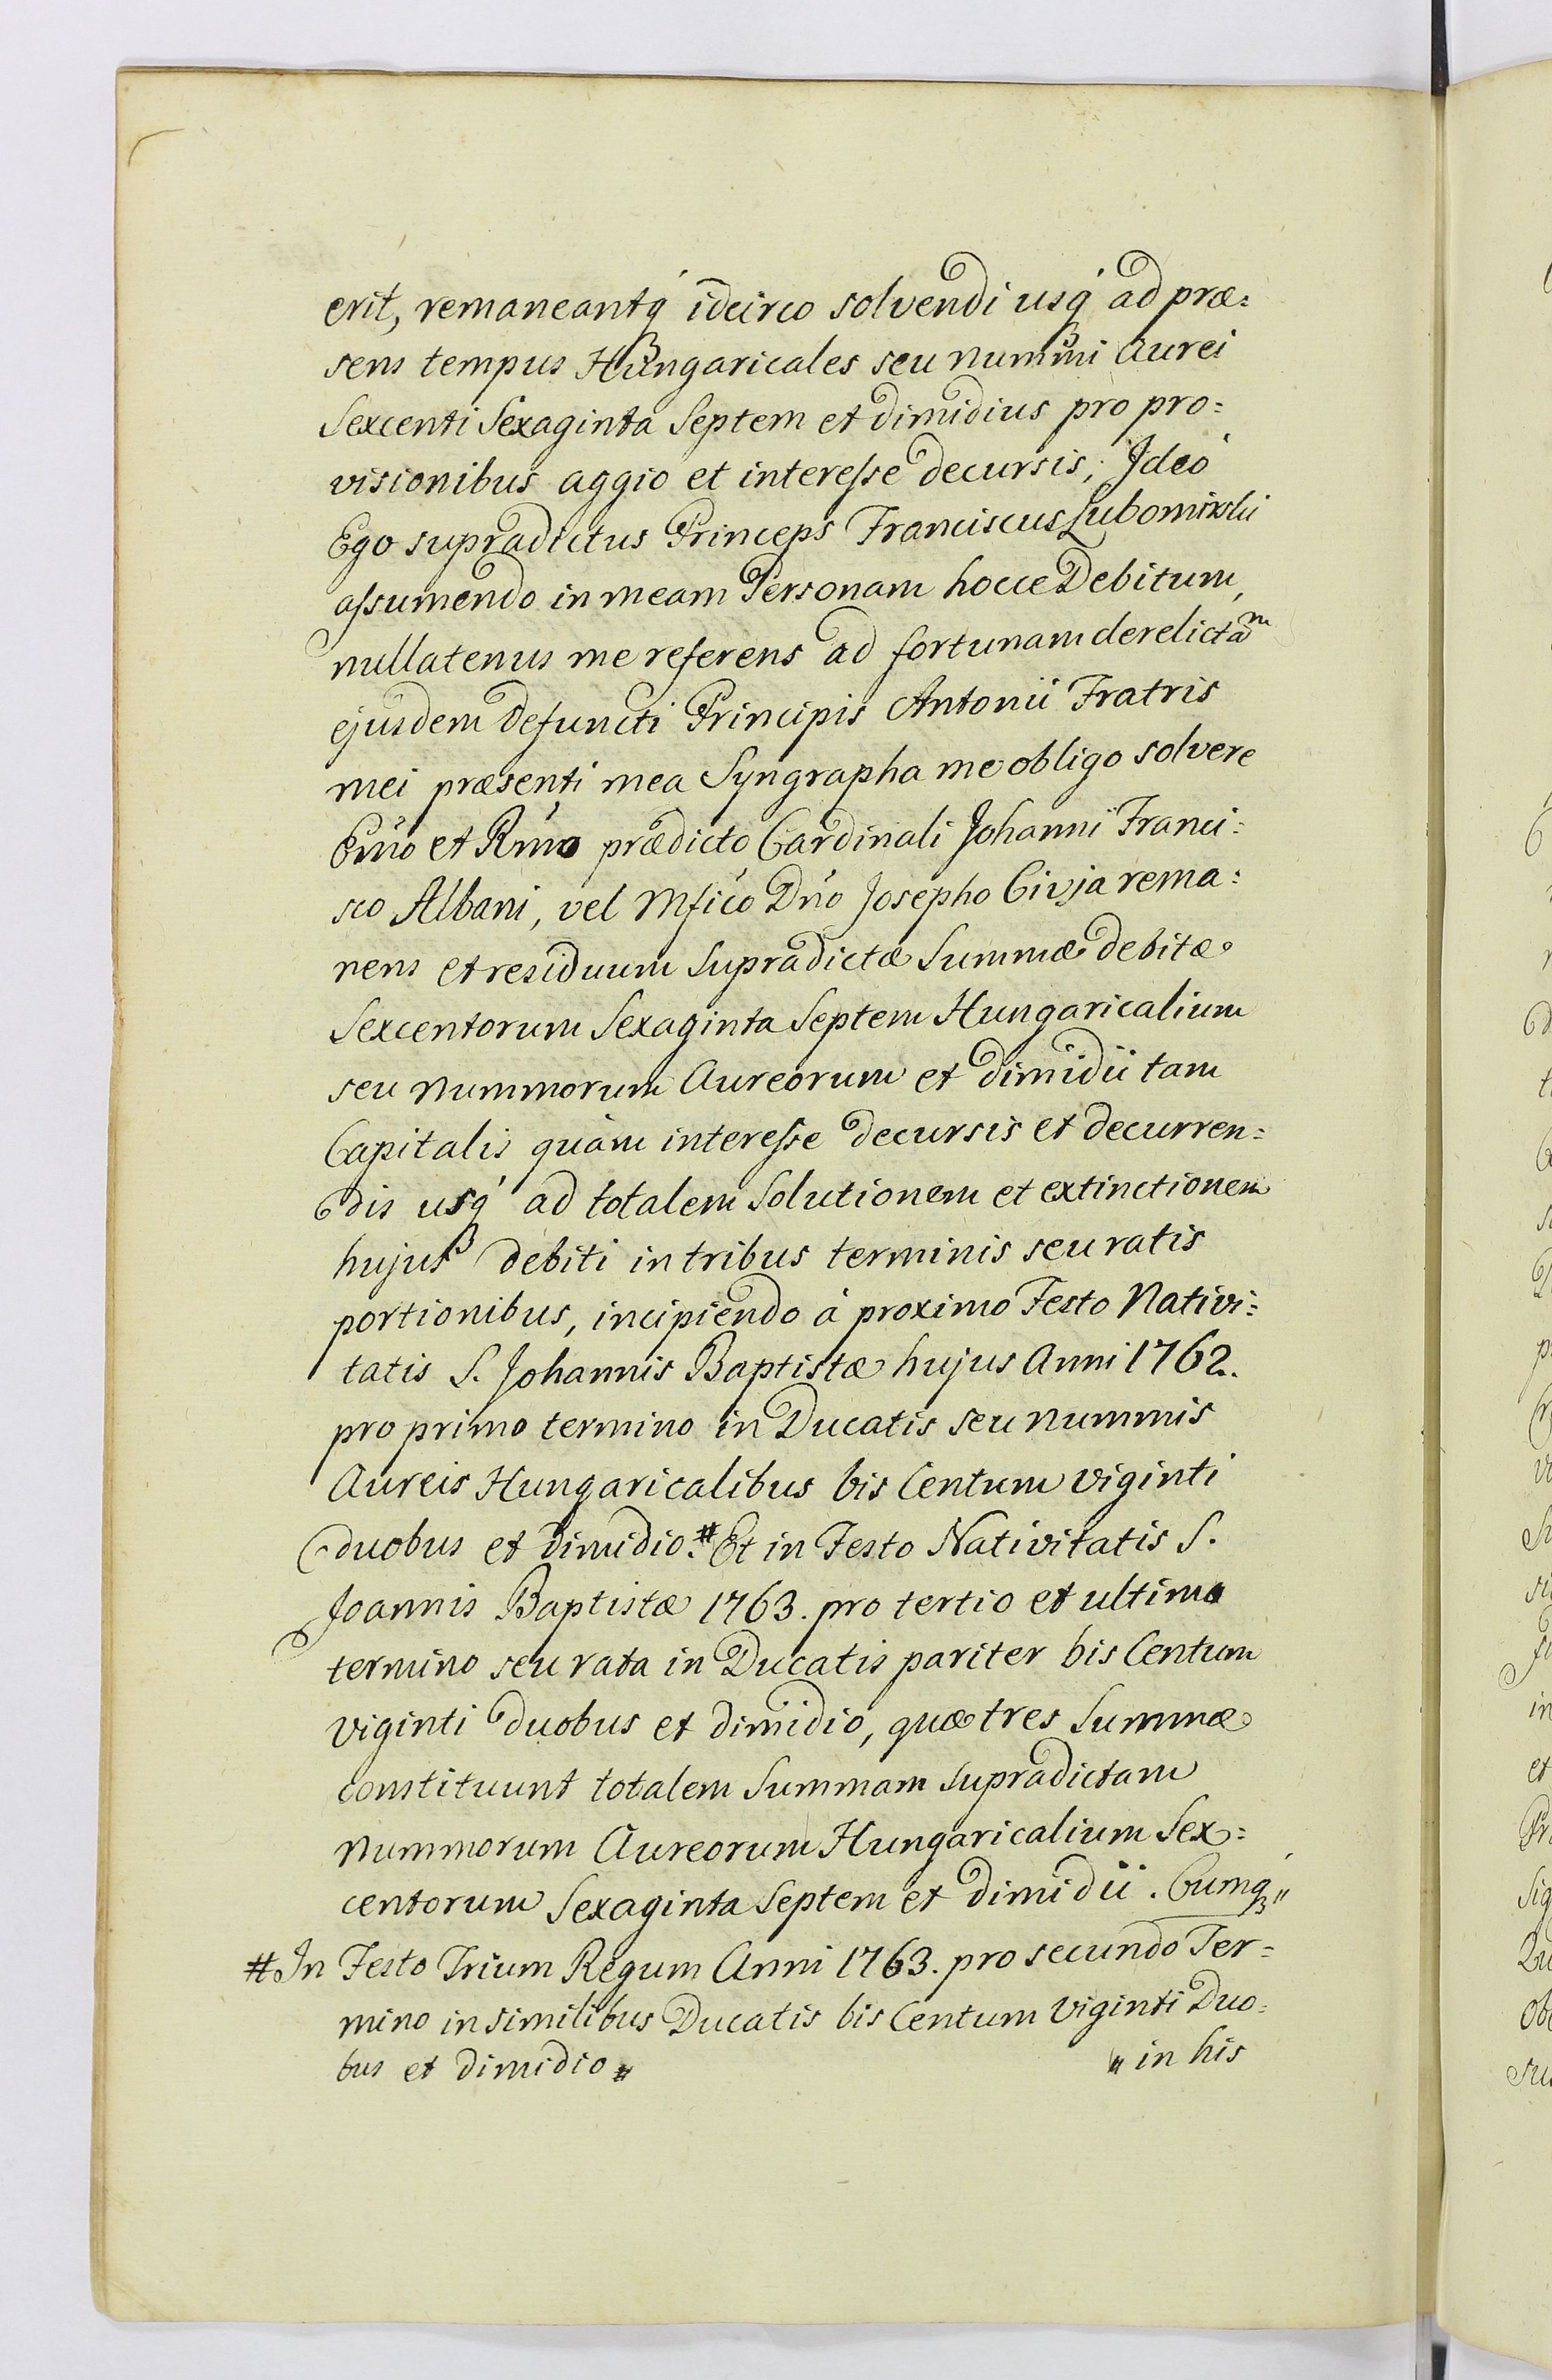 erit, remaneantq́ idcirco solvendi usq́ ad præ=
sens tempus Hungaricales seu nummi Aurei
Sexcenti Sexaginta Septem et dimidius pro pro=
visionibus aggio et interesse decursis; Ideò
Ego supradictus Princeps Franciscus Lubomirski
assumendo in meam Personam hocce Debitum,
nullatenus me referens ad fortunam derelictam
ejusdem defuncti Principis Antonii Fratris
mei præsenti mea Syngrapha me obligo solvere
Emo et Rmo prædicto Cardinali Johanni Franci=
sco Albani, vel Mfico Dno Josepho Civja rema=
nens et residuum supradictæ Summæ debitæ
Sexcentorum Sexaginta Septem Hungaricalium
seu Nummorum Aureorum et dimidii tam
Capitalis quàm interesse decursis et decurren=
dis usq́ ad totalem Solutionem et extinctionem
hujus debiti in tribus terminis seu ratis
portionibus, incipiendo à proximo Festo Nativi=
tatis S. Johannis Baptistæ hujus Anni 1762.
pro primo termino in Ducatis seu nummis
Aureis Hungaricalibus bis Centum viginti
duobus et dimidio.# Et in Festo Nativitatis S.
Joannis Baptistæ 1763. pro tertio et ultimo
termino seu rata in Ducatis pariter bis Centum
viginti duobus et dimidio, quæ tres Summæ
constituunt totalem Summam supradictam
Nummorum Aureorum Hungaricalium Sex=
centorum Sexaginta Septem et dimidii. Cumq́3 "
# In Festo Trium Regum Anni 1763. pro secundo Ter=
mino in similibus Ducatis bis Centum Viginti Duo=
bus et dimidio #
" in his